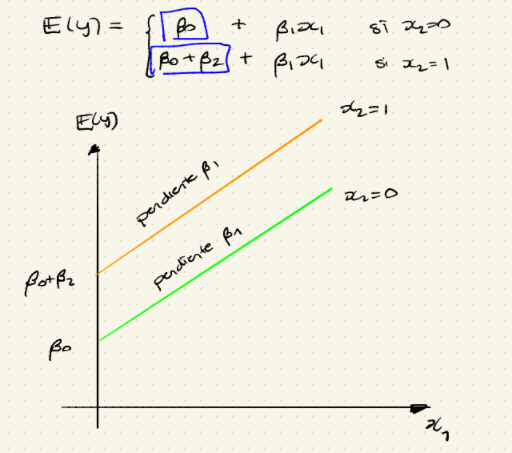 E(y) = { β0 + β1x1 si x2=0
β0 + β2 + β1x1 si x2=1
E(y)
x2=1
pendiente β1
x2=0
pendiente β1
β0+β2
β0
x1